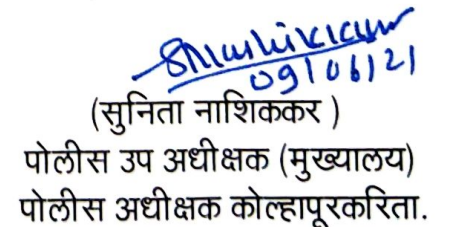 SNashikkar
09/06/21
(सुनिता नाशिककर )
पोलीस उप अधीक्षक (मुख्यालय)
पोलीस अधीक्षक कोल्हापूरकरिता.